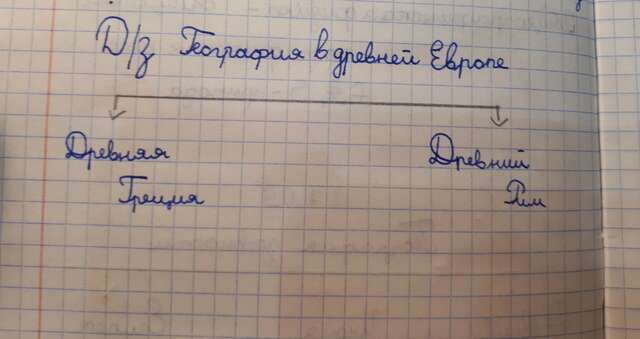 Д/з География в древней Европе
Древняя Древний
Греция Рим